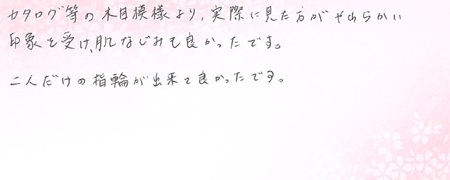 カタログ等の木目模様より、実際に見た方がやわらかい
印象を受け、肌なじみも良かったです。
二人だけの指輪が出来て良かったです。